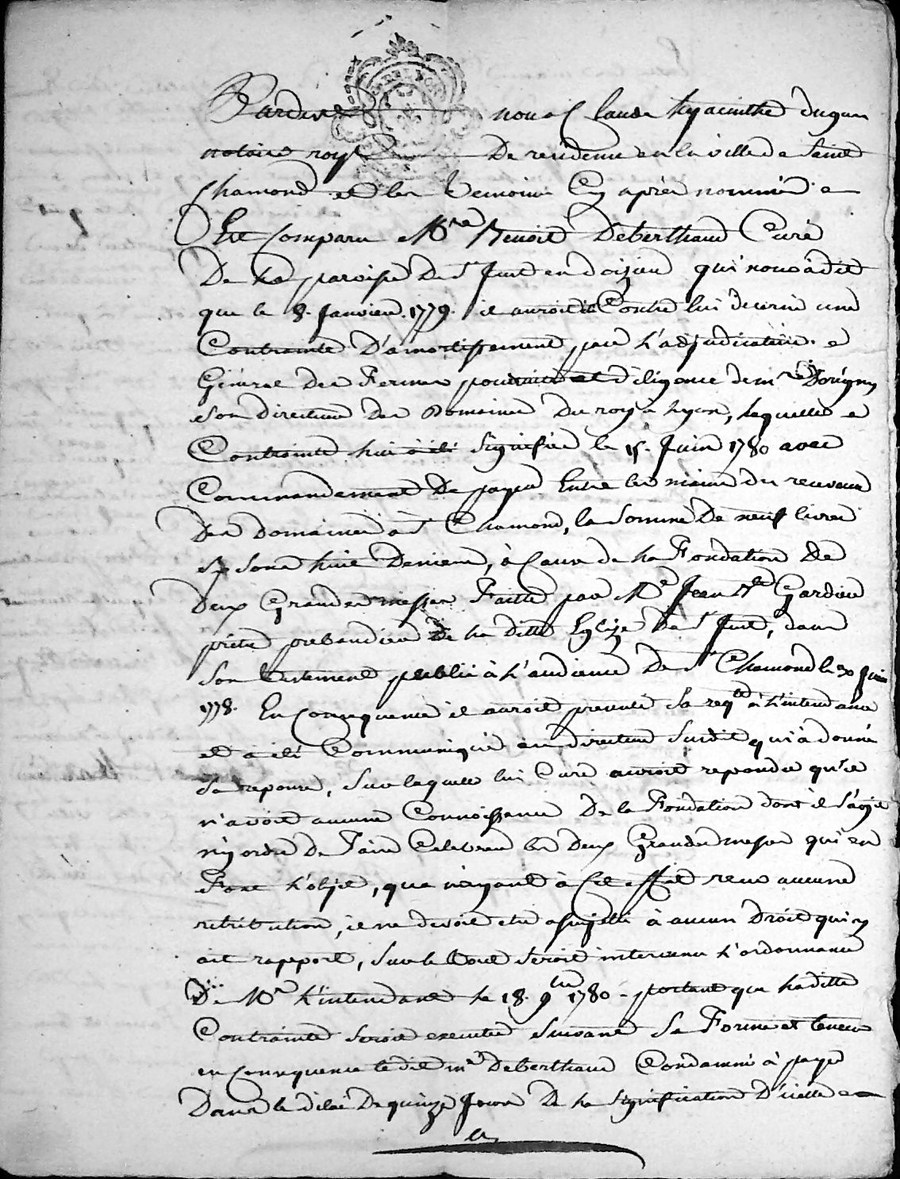 Pardevant nous Claude hyacinthe dugas
notaire royal De residence en la ville de Saint
Chamond et les temoins Cy après nommés
Est Comparu Mre Benoit Deberthaud Curé
De la paroisse De st Just en doizieu qui nous à dit
que le 8. Janvier 1779. il auroit été Contre lui décerné une
Contrainte D'amortissement par l'adjudicataire
Général des Fermes poursuite et diligence de mr Dorigny
son directeur des Domaines Du roy a lyon, laquelle
Contrainte lui à été signifiée le 15. Juin 1780 avec
Commandement De payer Entre les mains du receveur
Des Domaines à st Chamond, la Somme De neuf livres
sols huit Deniers, à Cause de la Fondation De
Deux Grandes messes Faitte par Me Jean Bte Gardieu
prêtre prebandier de la ditte Eglize De st Just, dans
son testement publié à l'audience De st Chamond le 30 Juin
1778. En Consequence il auroit presenté sa reqte à l'intendance
et a été Communiqué au directeur susdit qui à donné
sa reponse, sur laquelle led Curé auroit repondu qu'il
n'avoit aucune Connoissance De la Fondation dont il s'agit
ny ordre De Faire Celebrer les Deux Grandes messes qui en
Font l'objet, que n'ayant à Cet effet recu aucune
retribution, il ne devoit etre assujetti à aucun Droit qui y
ait rapport, sur le tout seroit intervenu l'ordonnance
De Mr l'intendant le 18. 9bre 1780 - portant que la ditte
Contrainte seroit executée suivant sa Forme et teneur
en Consequence le dit mre Deberthaud Condamné à payer
Dans le délai De quinze Jours De la signification D'icelle